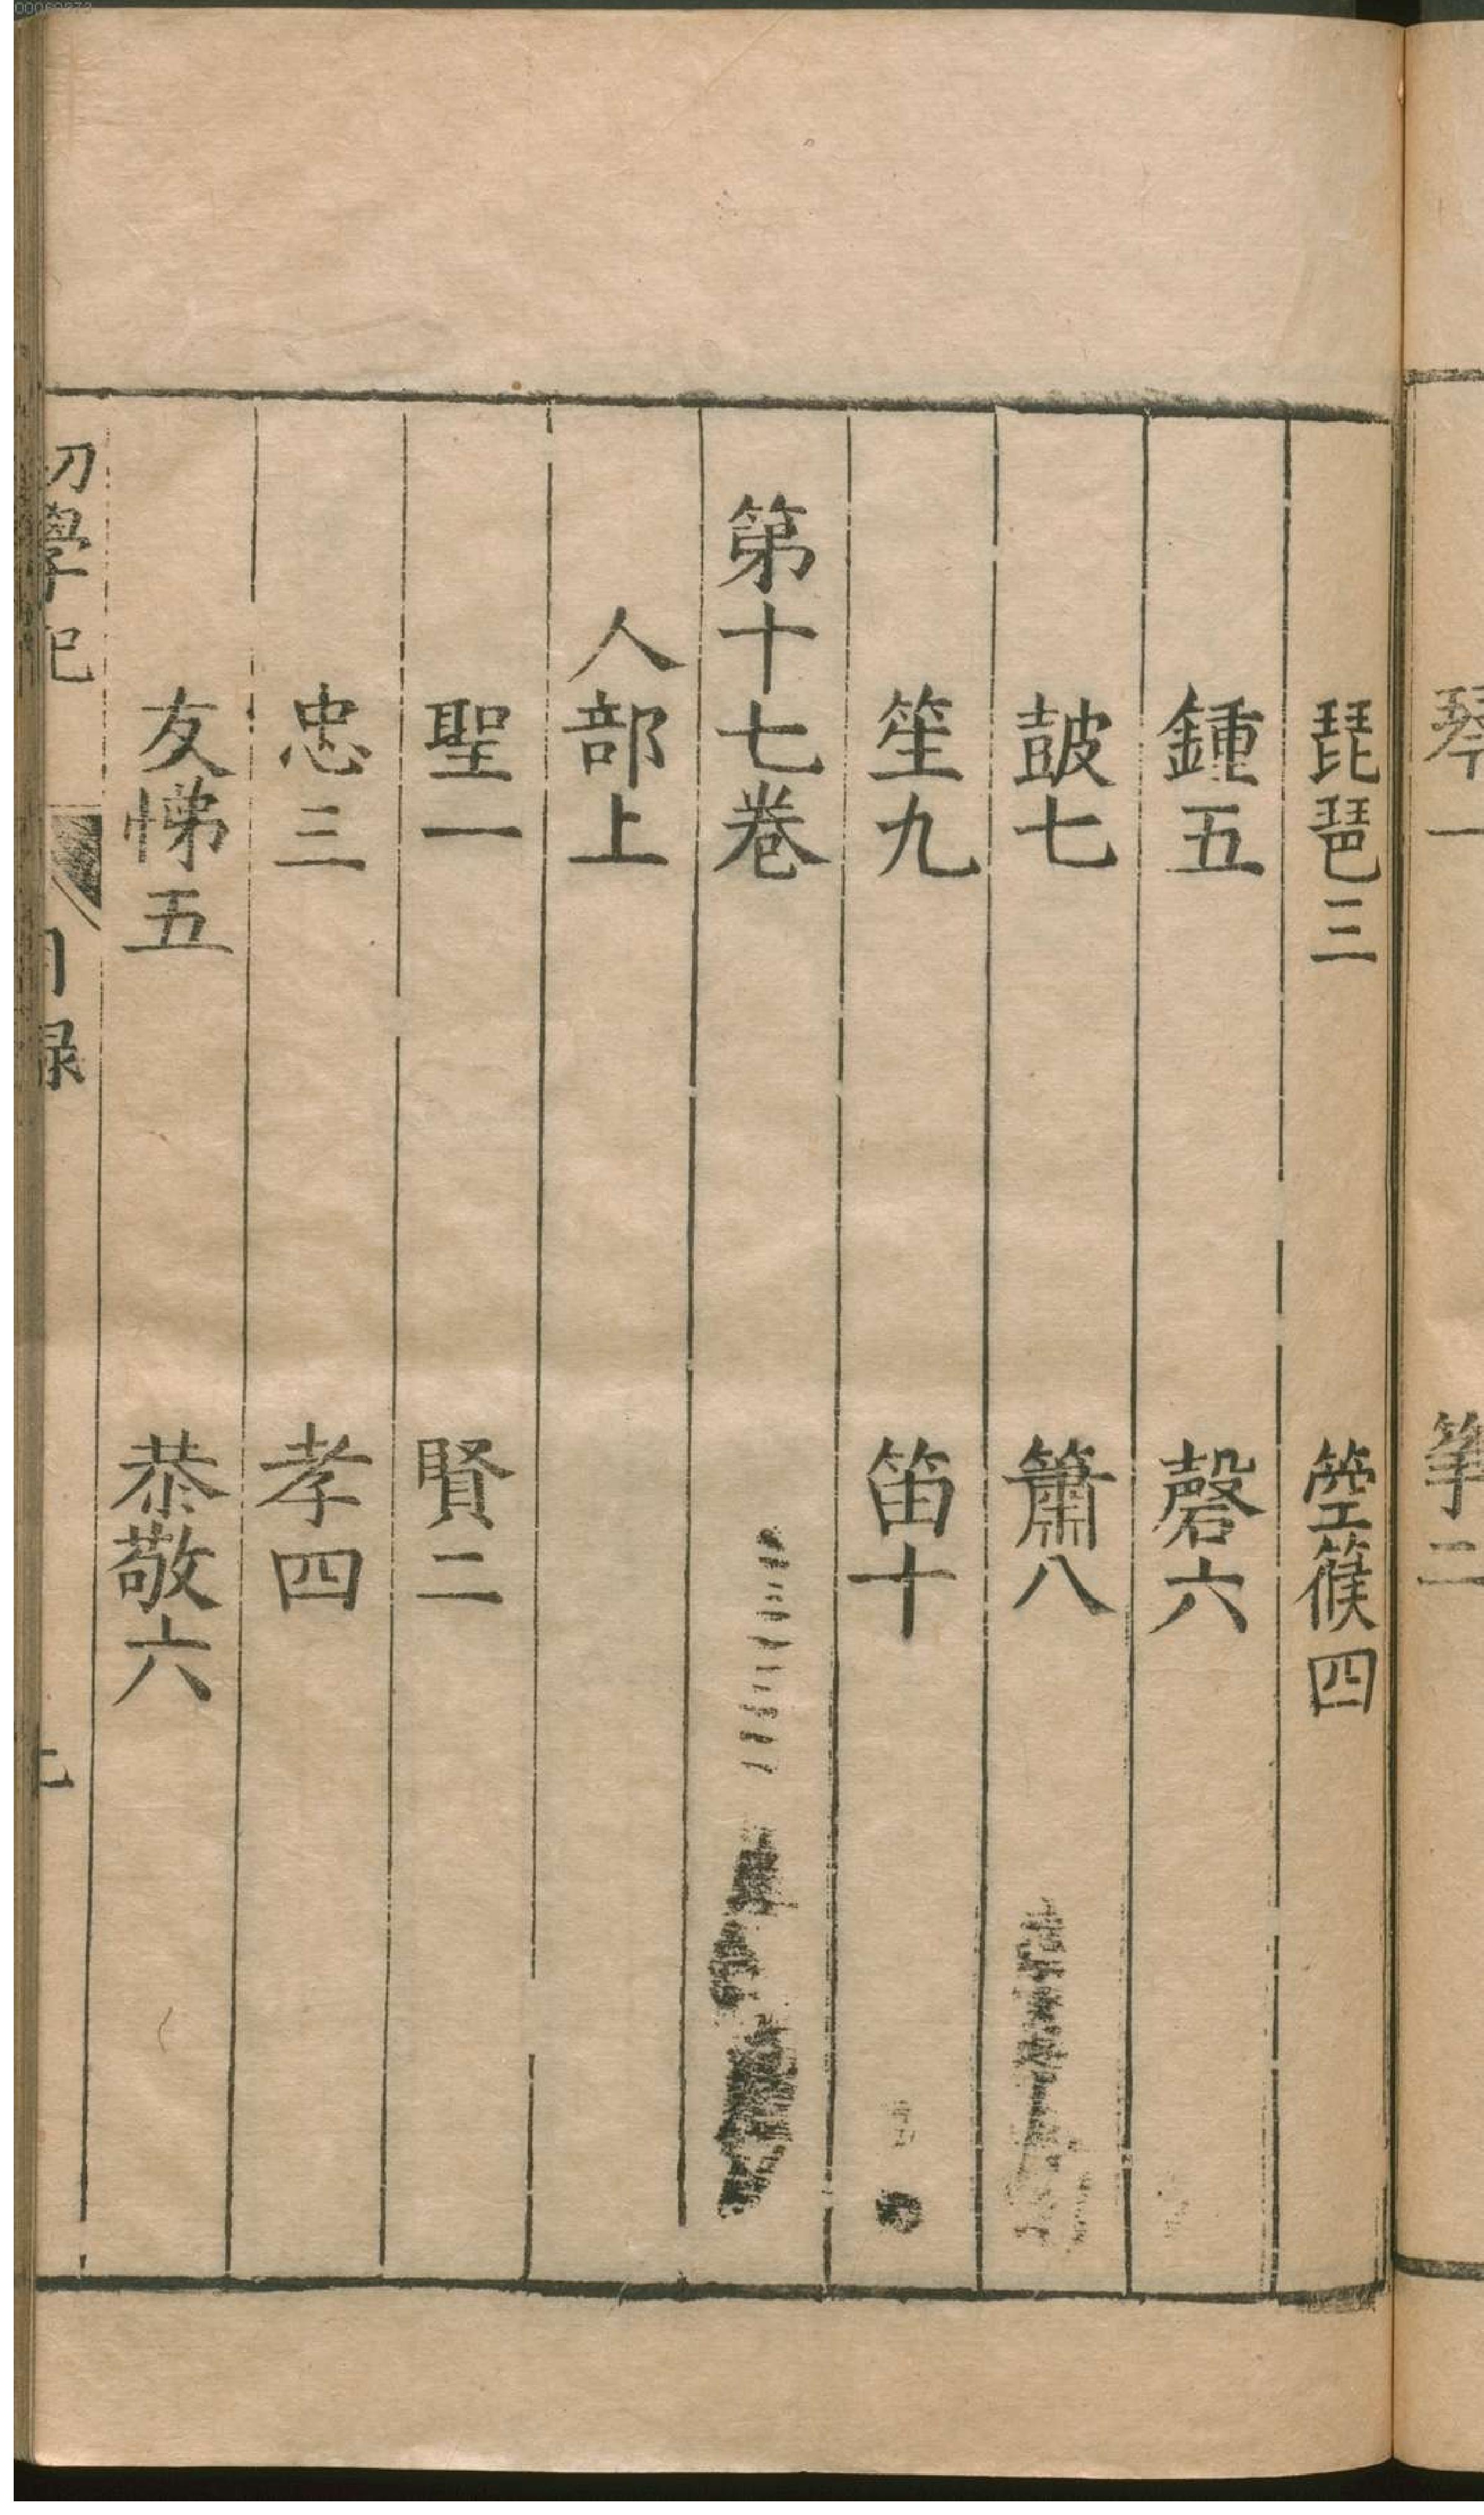 琴一　箏二
琵琶三　箜篌四
鍾五　磬六
皷七　簫八
笙九　笛十
第十七卷
人部上
聖一　賢二
忠三　孝四
友悌五　恭敬六
初學記　目録
00060273